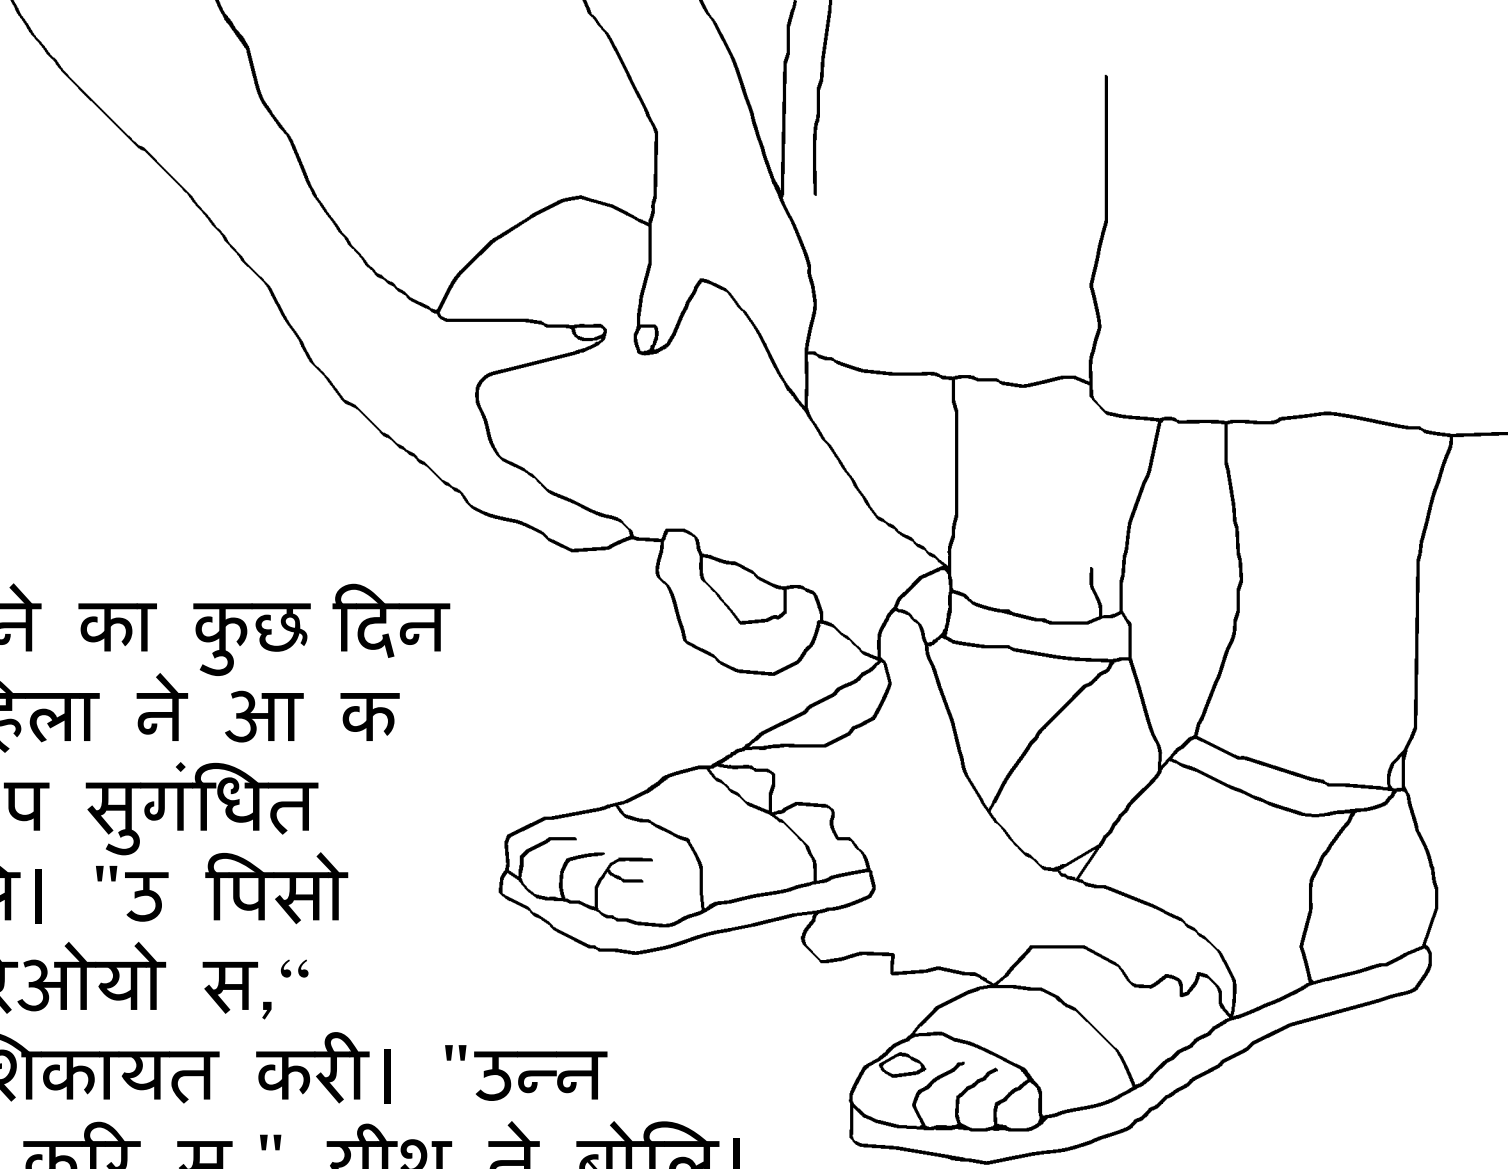 ने का कुछ दिन
हिला ने आ क
प सुगंधित
"उ पिसो
रिओयो स,“
शिकायत करी। "उन्न
करि स," यीशु ने बोलि।